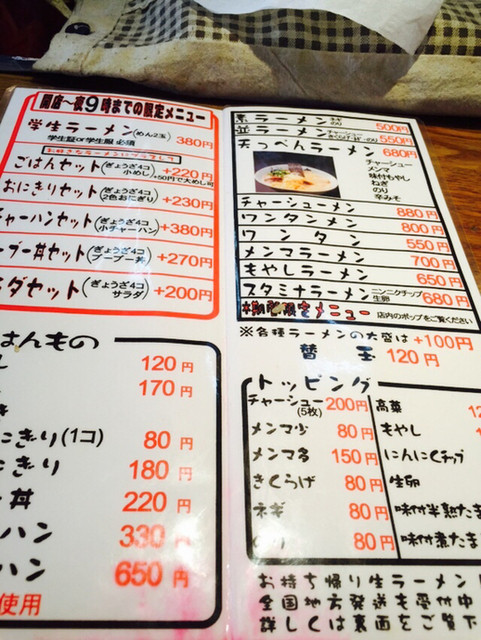 開店〜夜9時までの限定メニュー
学生ラーメン(めん2玉) 380円
学生証or学生服 必須
お好きなラーメンにプラスして
ごはんセット(ぎょうざ4コ 小めし) +220円
+50円で大めし可
おにぎりセット(ぎょうざ4コ 2色おにぎり) +230円
ャーハンセット(ぎょうざ4コ 小チャーハン) +380円
ープー丼セット(ぎょうざ4コ プープー丼) +270円
ダセット(ぎょうざ4コ サラダ) +200円
はんもの
120円
170円
にぎり(1コ) 80円
にぎり 180円
丼 220円
ハン 330円
ハン 650円
使用
素ラーメン ネギ のり 500円
並ラーメン 550円
天っぺんラーメン 680円
チャーシュー
メンマ
味付もやし
ねぎ
のり
辛みそ
チャーシューメン 880円
ワンタンメン 800円
ワンタン 550円
メンマラーメン 700円
もやしラーメン 650円
スタミナラーメン ニンニクチップ 生卵 680円
メニュー 店内のポップをご覧ください
※各種ラーメンの大盛は +100円
替玉 120円
トッピング
チャーシュー(5枚) 200円
メンマ少 80円
メンマ多 150円
きくらげ 80円
ネギ 80円
のり 80円
高菜 12
もやし 1
にんにくチップ
生卵
味付半熟たま
味付煮たま
お持ち帰り生ラーメン
全国地方発送も受付中
詳しくは裏面をご覧下